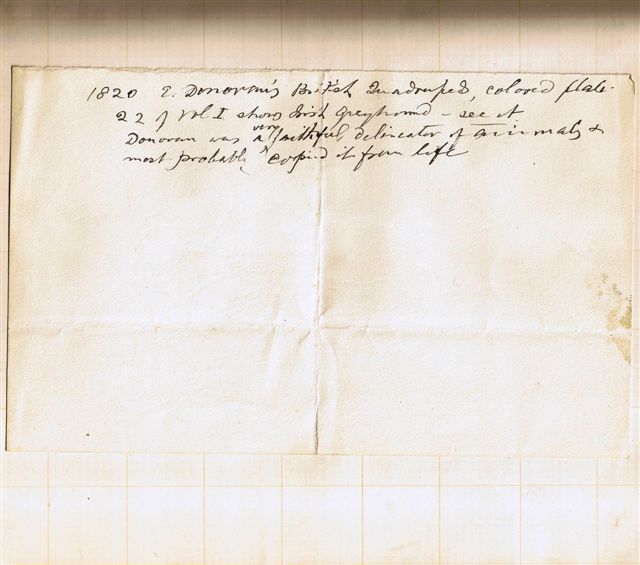 1820 E. Donovan's British Quadrupeds, colored plate
22 of Vol I. shows Irish Greyhound - see it
Donovan was a very faithful delineator of animals &
most probably copied it from life